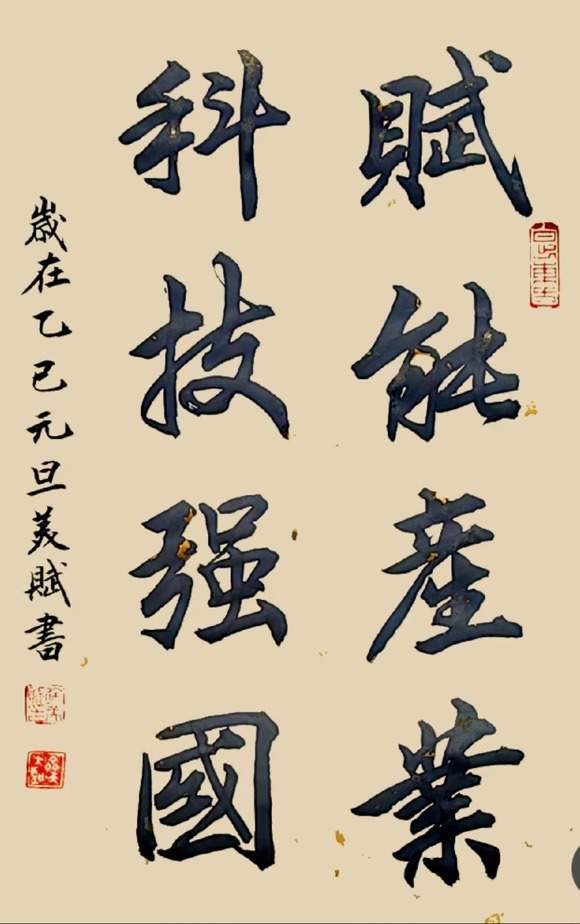 賦能產業
科技强國
歲在乙巳元旦美賦書